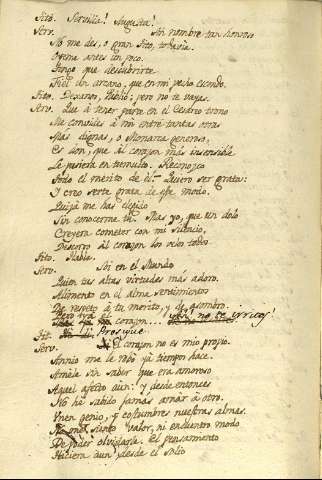 Tito. Servilia! Augusta!
Serv. Un nombre tan honroso
No me des, o gran Tito, todavia.
Oyeme antes un poco.
Tengo que descubrirte
Fiel un arcano, que en mi pecho escondo.
Tito. Dexanos, Publio; pero no te vayas.
Serv. Que à tener parte en el Cesareo trono
Me convides à mi entre tantas otras
Mas dignas, o Monarca generoso,
Es don, que al corazon mas insensible
Le pusiera en tumulto. Reconozco
Todo el merito de él. Quiero ser grata:
Y creo serte grata de este modo.
Quizá me has elegido
Sin conocerme tu. Mas yo, que un dolo
Creyera cometer con mi silencio,
Descorro al corazon los velos todos.
Tito. Habla.
Serv. No hai en el Mundo
Quien tus altas virtudes mas adore.
Alimento en el alma sentimientos
De respeto à tu merito, y de asombro.
Pero el corazon... Ah! no te irrites!
Tit. Prosigue.
Serv. El corazon no es mio propio.
Annio me le robó yà tiempo hace.
Amèle sin saber que era amoroso
Aquel afecto aun: y desde entonces
No hà sabido jamas amàr à otro.
Unen genio, y costumbres nuestras almas.
siento valor, ni encuentro modo
De poder olvidarle. El pensamiento
Hiciera aun desde el solio